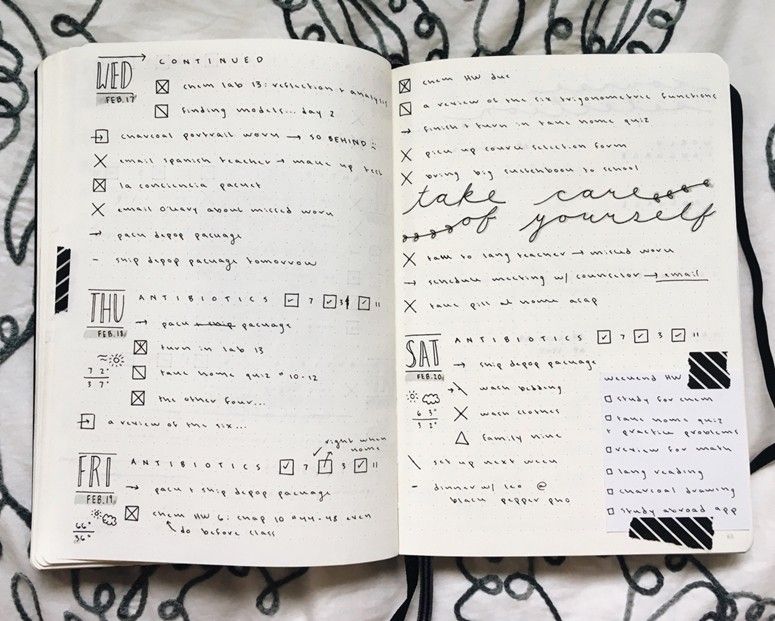 WED CONTINUED
FEB.17
chem lab 13: reflection + analysis
finding models... day 2
charcoal portrait work → SO BEHIND :(
email spanish teacher → make up test
la conciencia packet
email o'leary about missed work
→ pack depop package
- ship depop package tomorrow
THU ANTIBIOTICS 7 3 11
FEB.18
→ pack + ship package
turn in lab 13
72°
37°
take home quiz #10-12
the other four...
a review of the six...
right when home
FRI ANTIBIOTICS 7 3 11
FEB.19
→ pack + ship depop package
66°
36°
chem HW 6: chap 10 #44-48 even
do before class
chem HW due
a review of the six trigonometric functions
→ finish + turn in take home quiz
pick up course selection form
bring big sketchbook to school
take care
of yourself
talk to lang teacher → missed work
→ schedule meeting w/ counselor → email
take pill at home asap
SAT ANTIBIOTICS 7 3 11
FEB.20
→ ship depop package
63°
32°
wash bedding
wash clothes
family hike
set up next week
- dinner w/ leo @
black pepper pho
weekend HW
study for chem
take home quiz
+ practice problems
review for math
lang reading
charcoal drawing
study abroad app